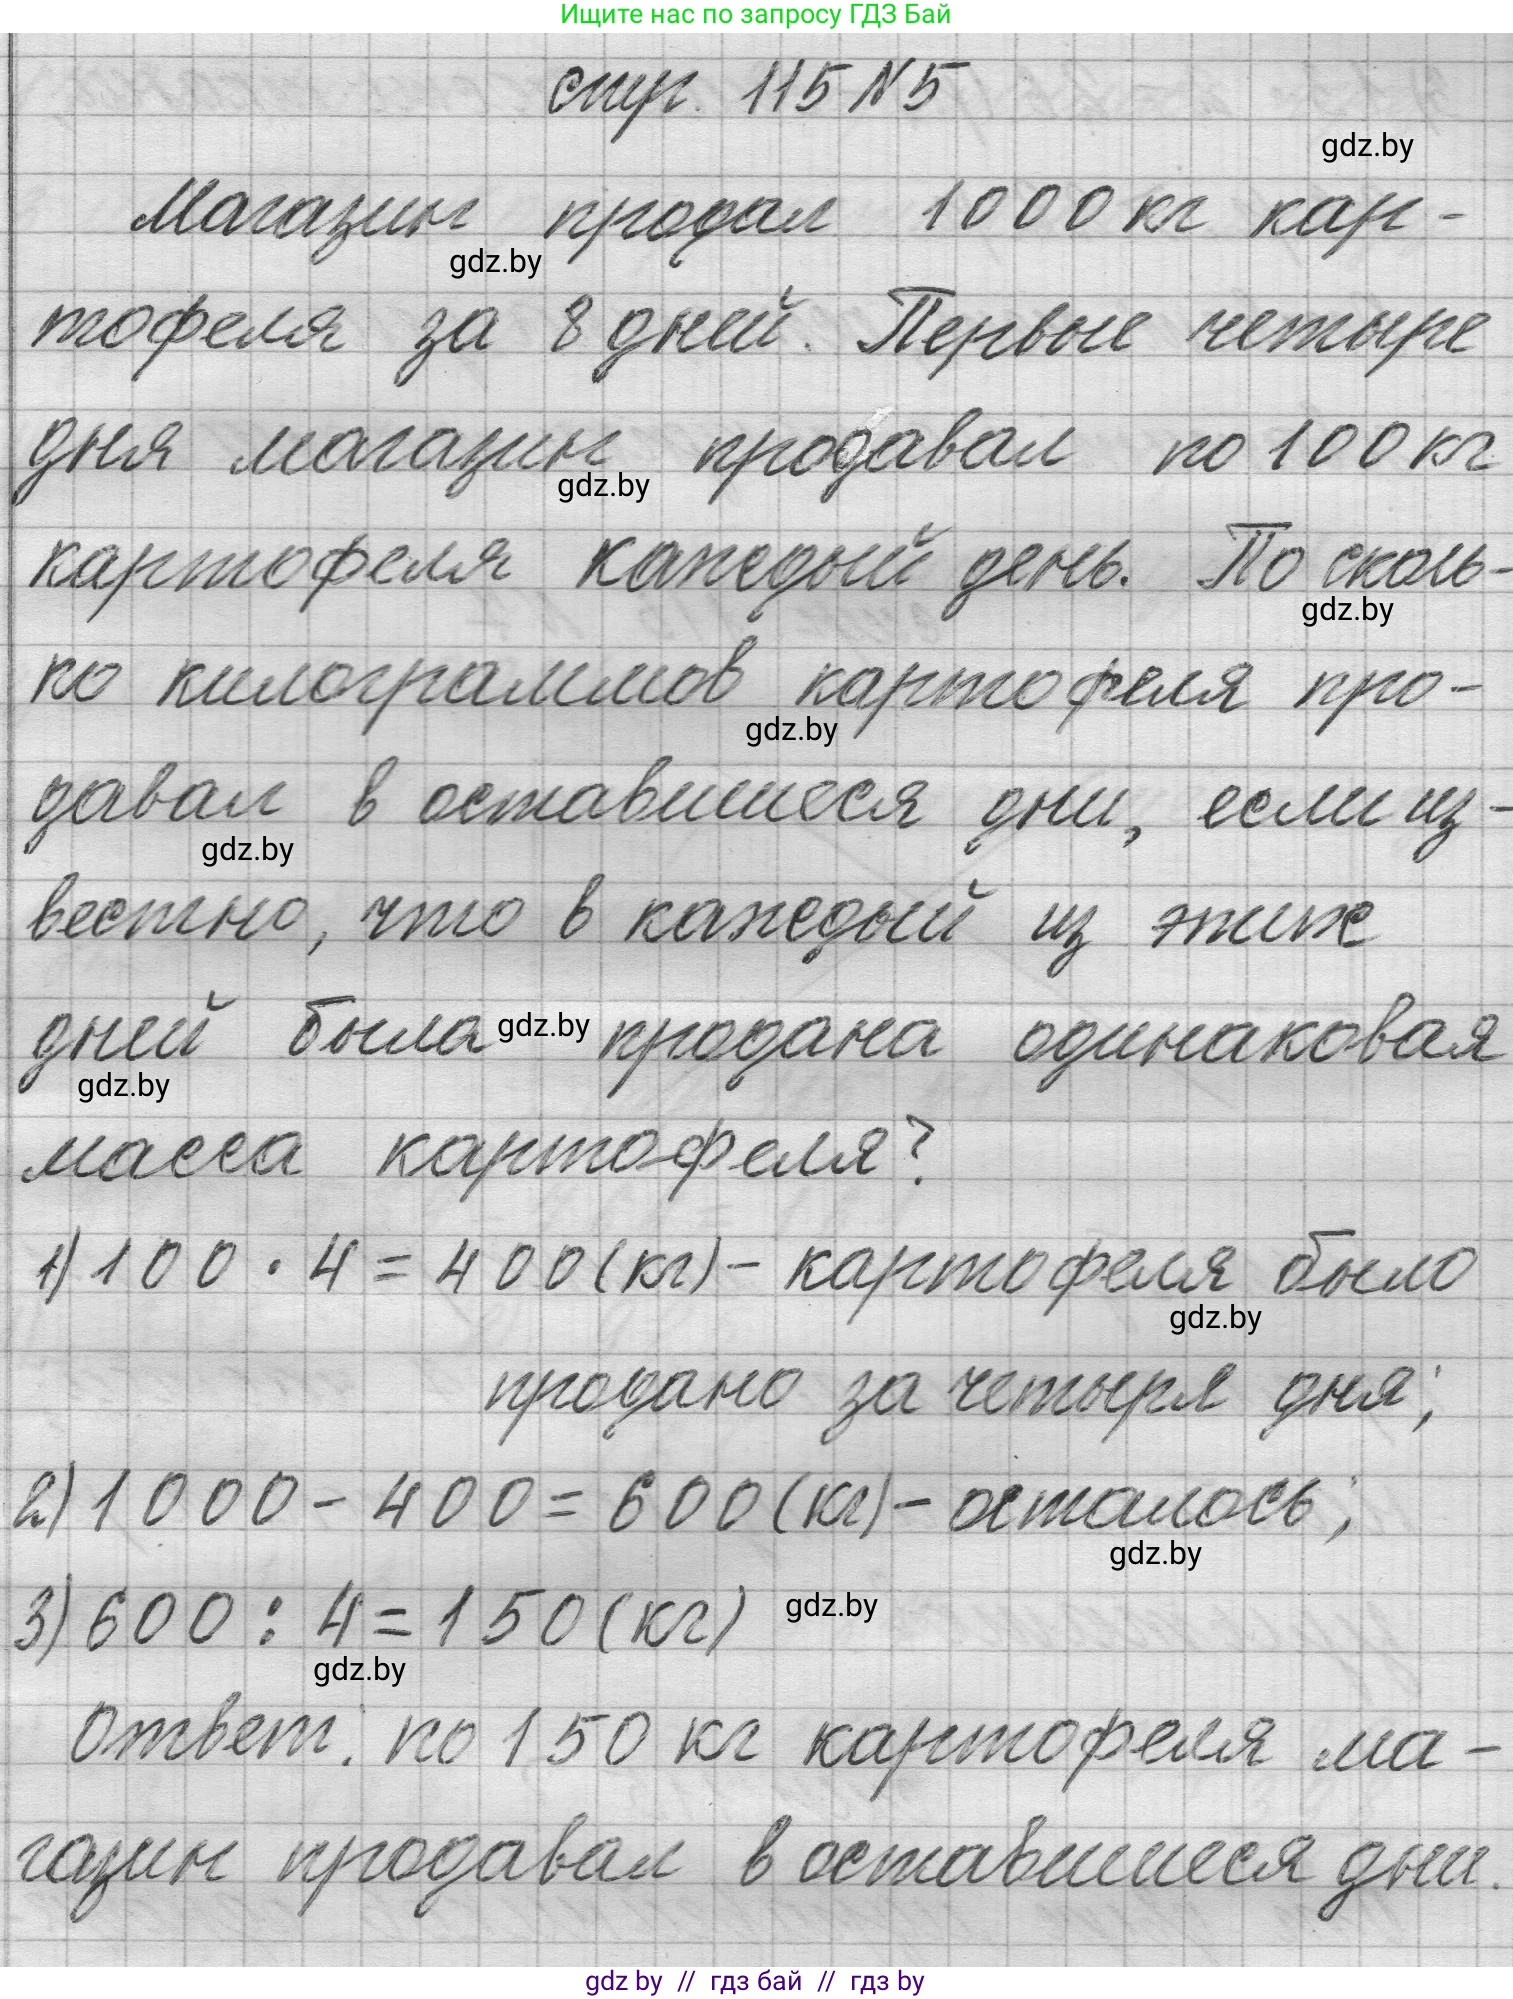 Ищите нас по запросу ГДЗ Бай
стр. 115 N5
gdz.by
Магазин продал 1000 кг кар-
gdz.by
тофеля за 8 дней. Первые четыре
дня магазин продавал по 100 кг
gdz.by
картофеля каждый день. По сколь-
gdz.by
ко килограммов картофеля про-
gdz.by
давал в оставшиеся дни, если из-
gdz.by
вестно, что в каждый из этих
дней была gdz.by продана одинаковая
gdz.by
масса картофеля?
1) 100 · 4 = 400 (кг) - картофеля было
gdz.by
продано за четыре дня;
2) 1000 - 400 = 600 (кг) - осталось;
gdz.by
3) 600 : 4 = 150 (кг) gdz.by
gdz.by
Ответ: по 150 кг картофеля ма-
газин продавал в оставшиеся дни.
gdz by // гдз бай // гдз by